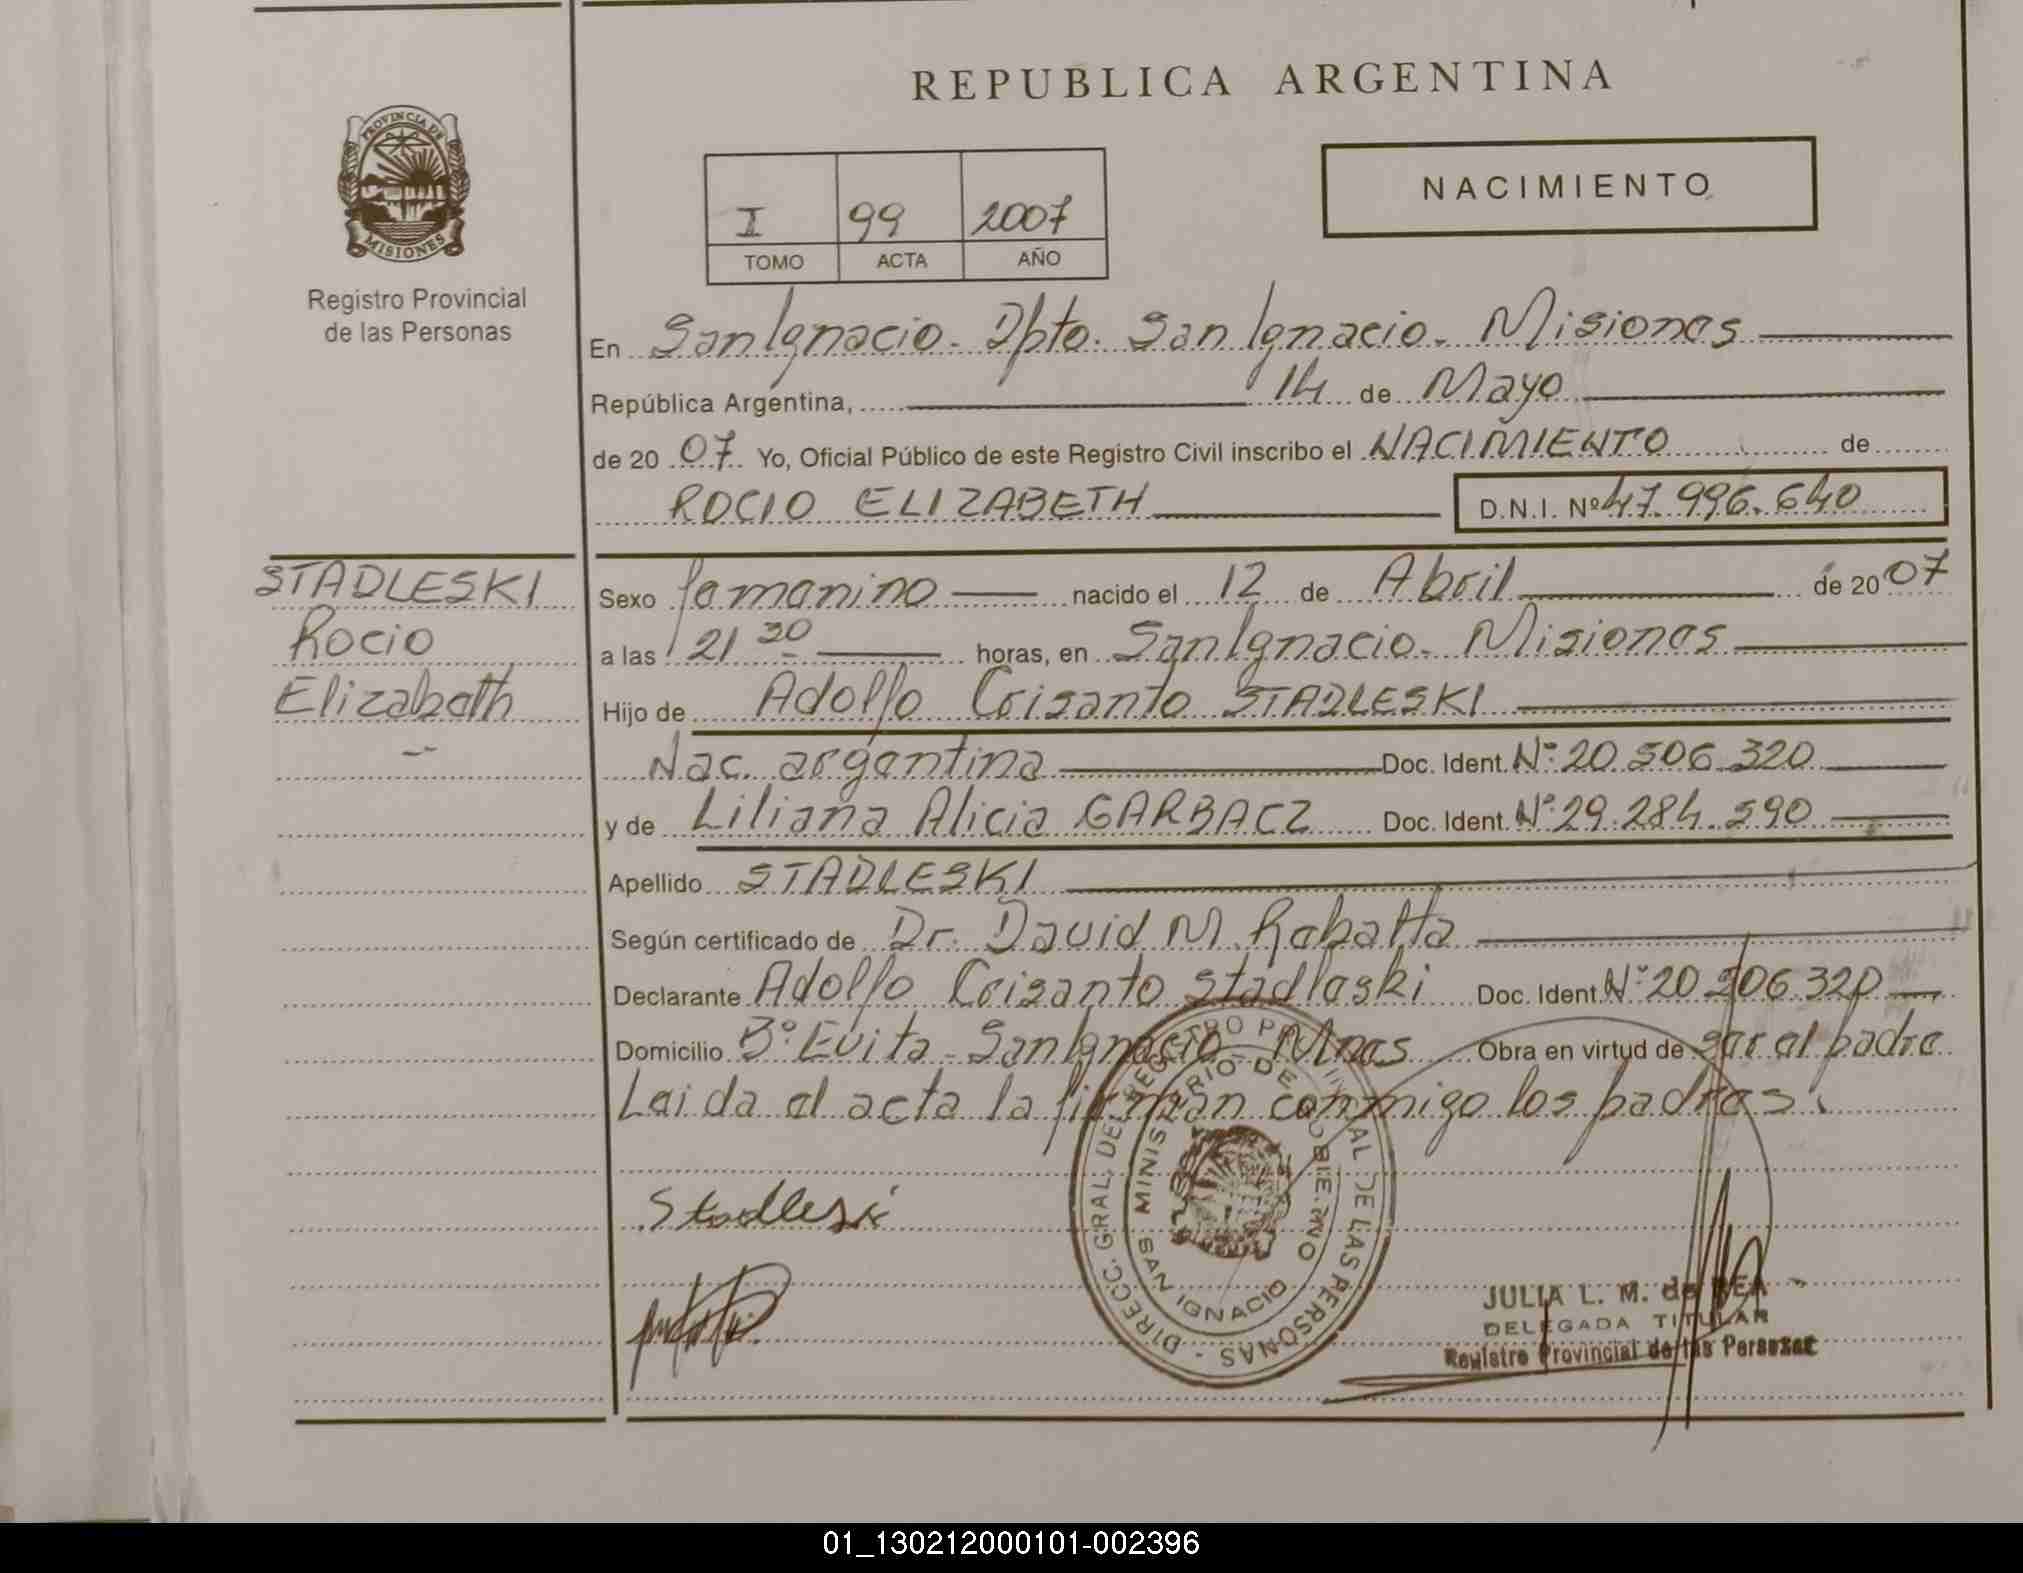 REPUBLICA ARGENTINA
PROVINCIA DE
MISIONES
Registro Provincial
de las Personas
NACIMIENTO
I 99 2007
TOMO ACTA AÑO
En San Ignacio - Dpto. San Ignacio - Misiones
República Argentina, 14 de Mayo
de 2007 Yo, Oficial Público de este Registro Civil inscribo el NACIMIENTO de
ROCIO ELIZABETH D.N.I. Nº 47.996.640
STADLESKI
Rocio
Elizabeth
Sexo femenino nacido el 12 de Abril de 2007
a las 21 30 horas, en San Ignacio - Misiones
Hijo de Adolfo Crisanto STADLESKI
Nac. argentina Doc. Ident. Nº 20.506.320
y de Liliana Alicia GARBACZ Doc. Ident. Nº 29.284.590
Apellido STADLESKI
Según certificado de Dr. David M. Rabatta
Declarante Adolfo Crisanto Stadleski Doc. Ident. Nº 20.506.320
Domicilio Bº Evita - San Ignacio - Mnes Obra en virtud de ser el padre
Leida el acta la firman conmigo los padres.
Stadleski
DIRECC. GRAL. DEL REGISTRO PROVINCIAL DE LAS PERSONAS -
MINISTERIO DE GOBIERNO
SAN IGNACIO
JULIA L. M. de REA
DELEGADA TITULAR
Registro Provincial de las Personas
01_130212000101-002396